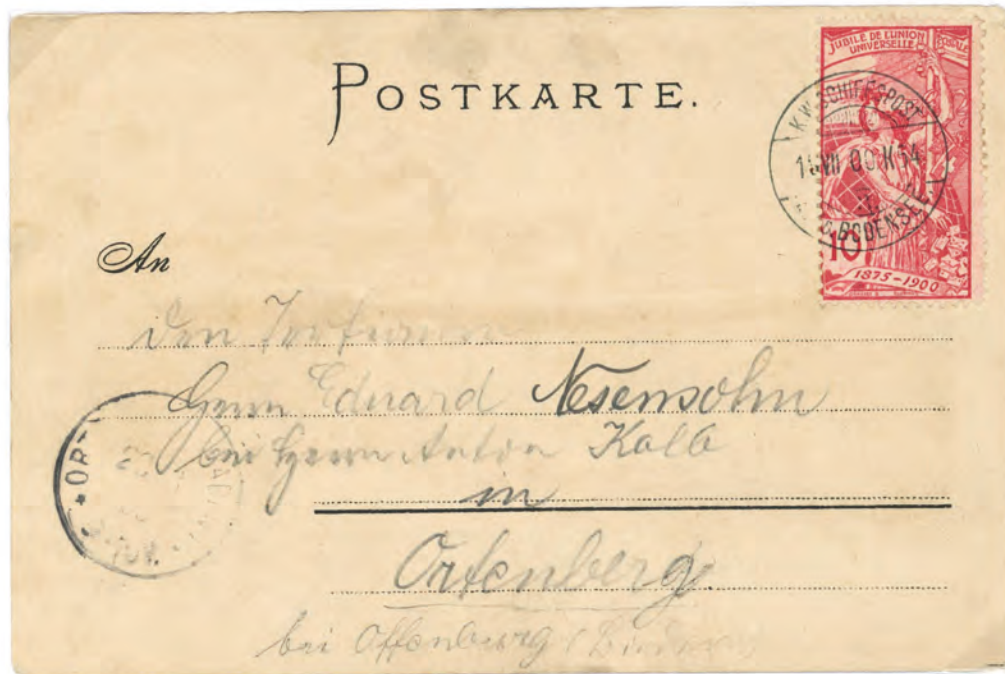 POSTKARTE.
JUBILÉ DE L'UNION
UNIVERSELLE POSTALE
K.W. SCHIFFSPOST
BODENSEE
10
1875-1900
An
den
Herrn Eduard Nesensohn
bei Herrn Anton Kalb
in
Ortenberg
bei Offenburg (Baden)
ORT